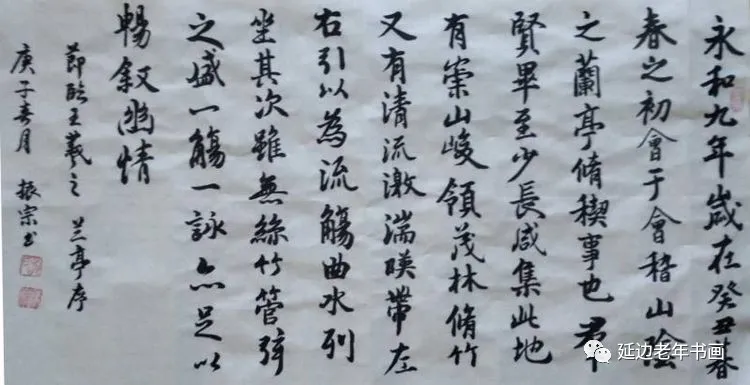 永和九年歲在癸丑暮
春之初會于會稽山陰
之蘭亭脩稧事也羣
賢畢至少長咸集此地
有崇山峻領茂林脩竹
又有清流激湍暎帶左
右引以為流觴曲水列
坐其次雖無絲竹管弦
之盛一觴一詠亦足以
暢叙幽情
節臨王羲之 兰亭序
庚子春月 振宗书
延边老年书画